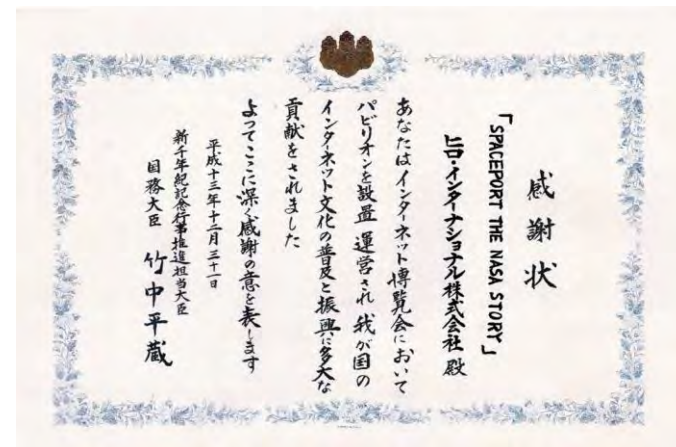 感謝状
「SPACEPORT THE NASA STORY」
ヒロ・インターナショナル株式会社 殿
あなたはインターネット博覧会において
パビリオンを設置 運営され 我が国の
インターネット文化の普及と振興に多大な
貢献をされました
よってここに深く感謝の意を表します
平成十三年十二月三十一日
新千年紀記念行事推進担当大臣
国務大臣 竹中平蔵